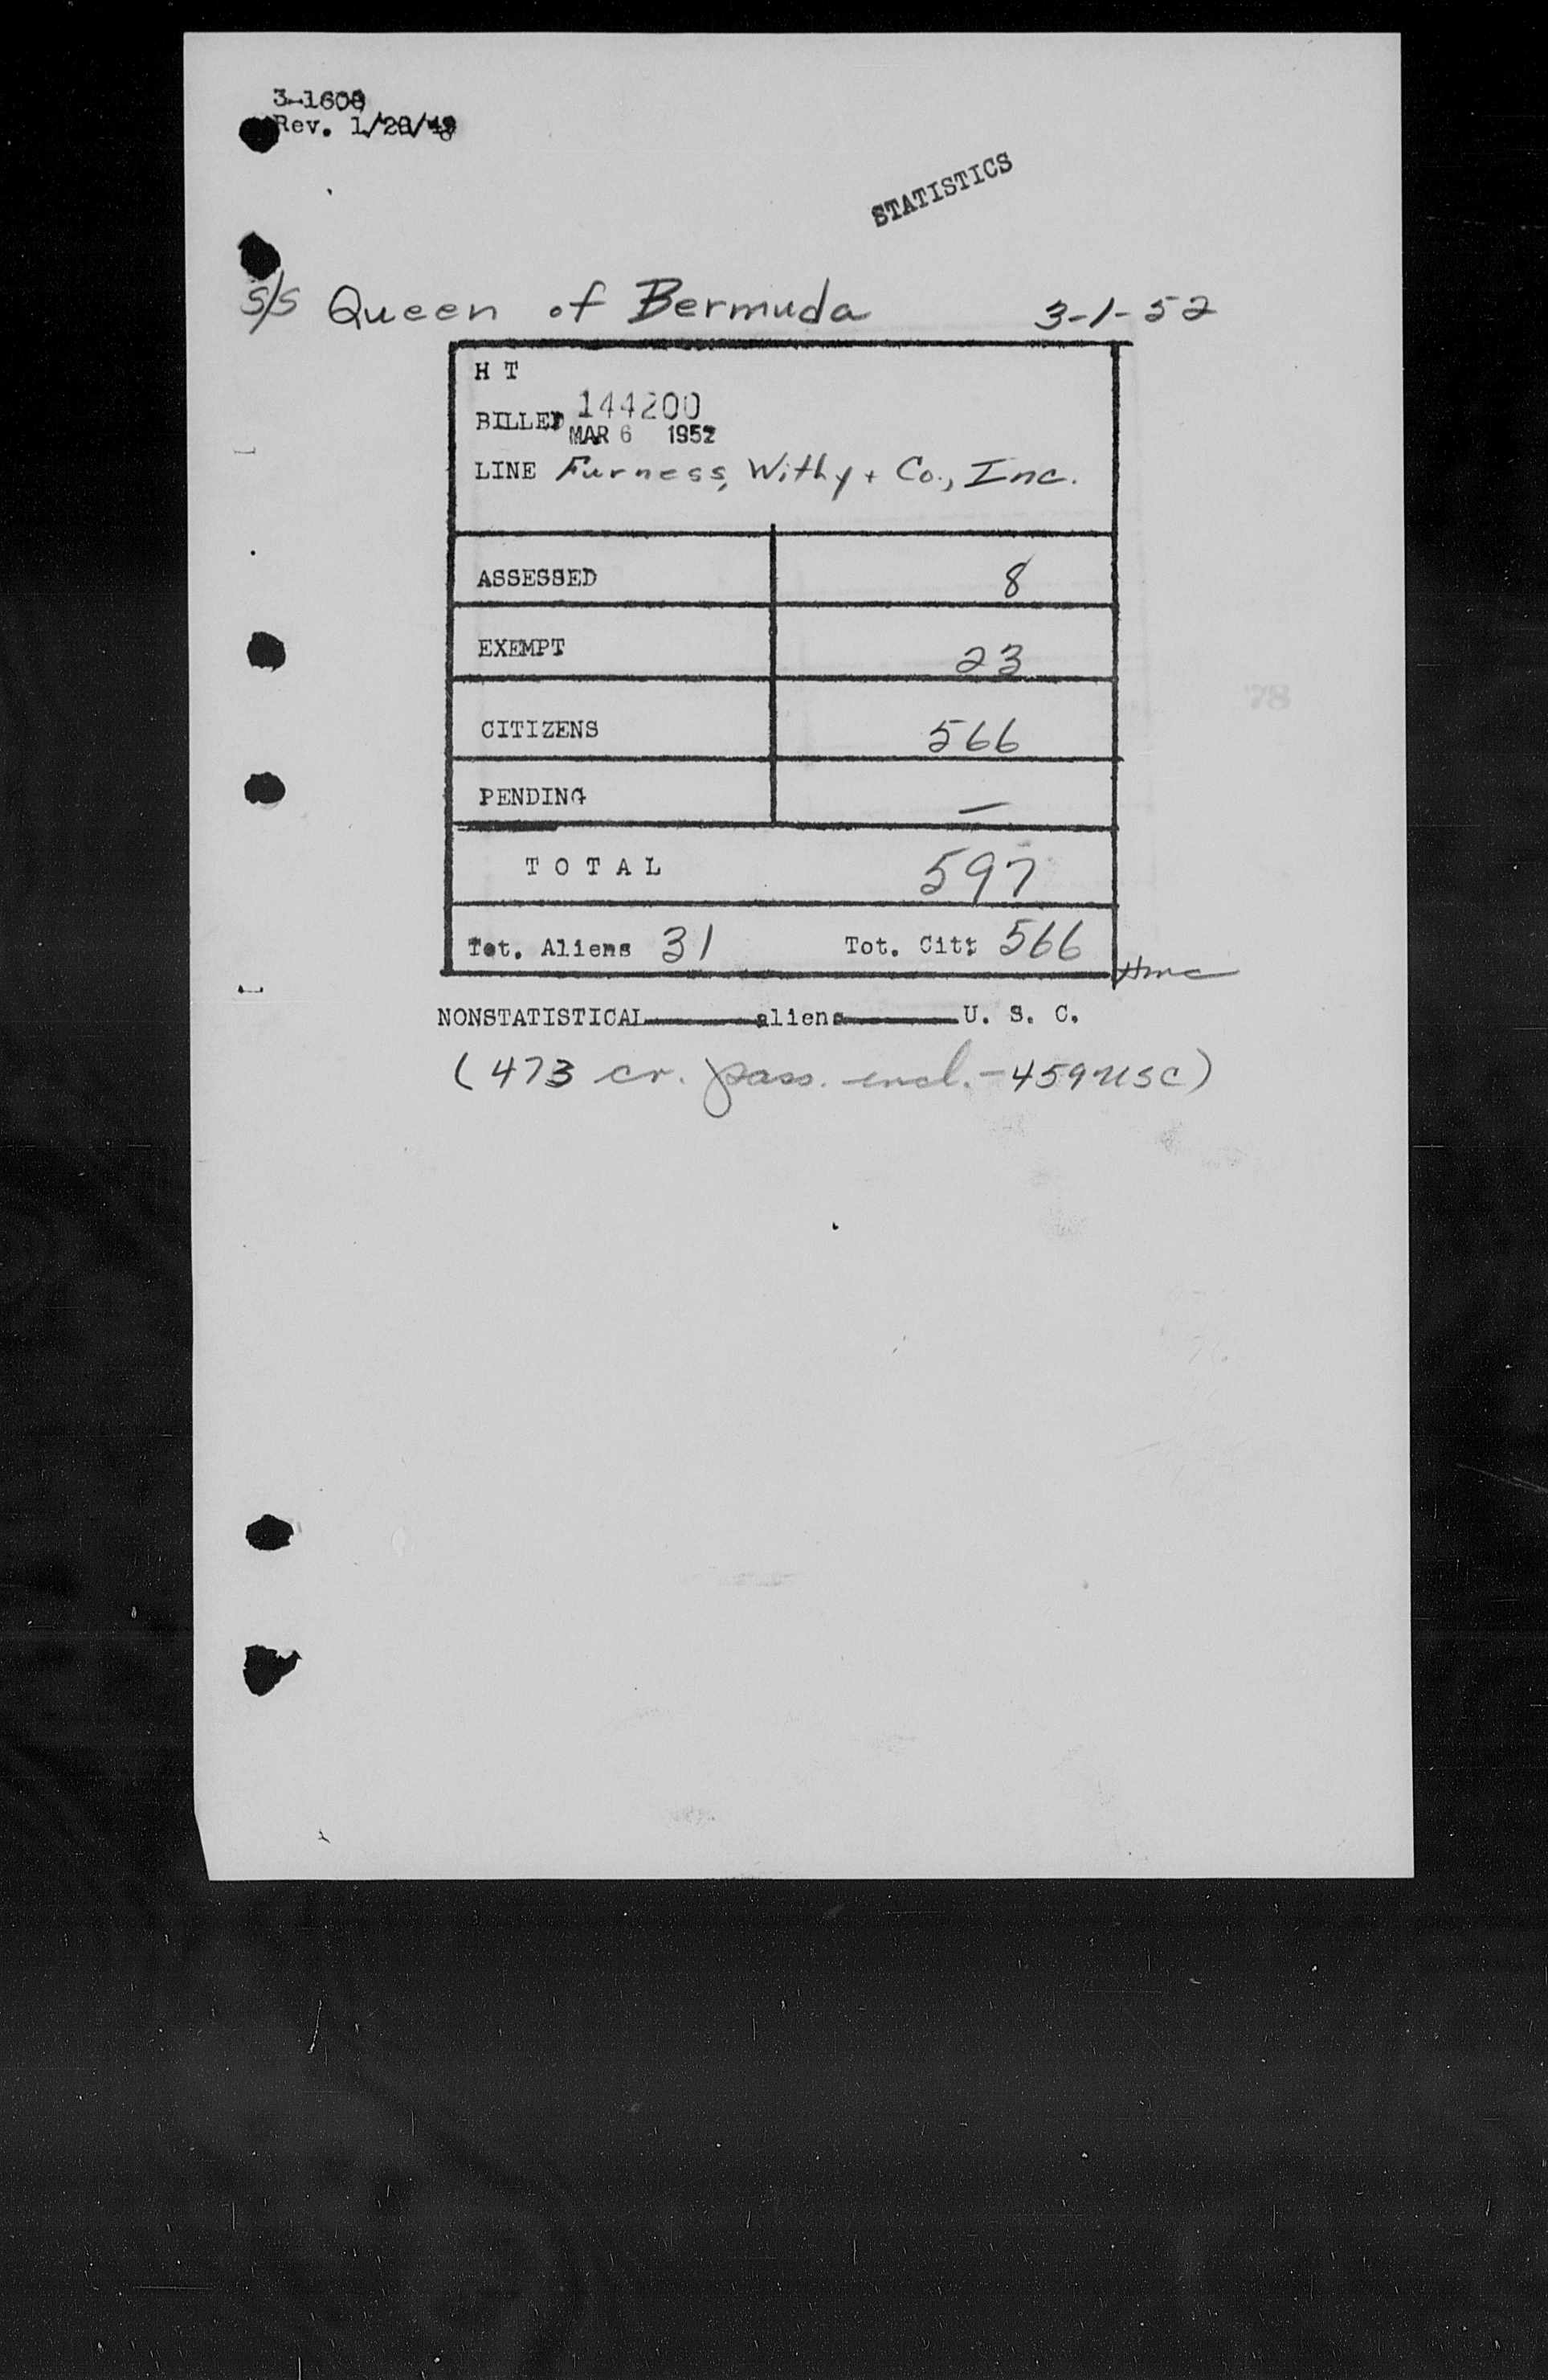 3-1608
Rev. 1/28/48
STATISTICS
S/S Queen of Bermuda 3-1-52
H T
BILLED 144200
MAR 6 1952
LINE Furness, Withy + Co., Inc.
ASSESSED 8
EXEMPT 23
CITIZENS 566
PENDING —
TOTAL 597
Tot. Aliens 31 Tot. Cit: 566
NONSTATISTICAL aliens U. S. C.
(473 cr. pass. incl. - 459 USC)